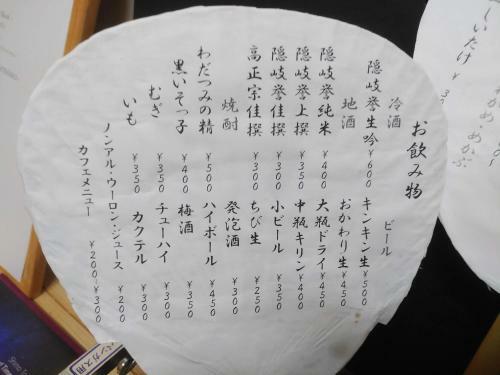 お飲み物
冷酒
隠岐誉生吟 ¥600
地酒
隠岐誉純米 ¥400
隠岐誉上撰 ¥350
隠岐誉佳撰 ¥300
高正宗佳撰 ¥300
焼酎
わだつみの精 ¥500
黒いそっ子 ¥400
むぎ ¥350
いも ¥350
ビール
キンキン生 ¥500
おかわり生 ¥450
大瓶ドライ ¥450
中瓶キリン ¥400
小ビール ¥350
ちび生 ¥250
発泡酒 ¥300
ハイボール ¥450
梅酒 ¥350
チューハイ ¥300
カクテル ¥300
ノンアル・ウーロン・ジュース ¥200
カフェメニュー ¥200~¥300
しいたけ ¥3
わかめ・めかぶ